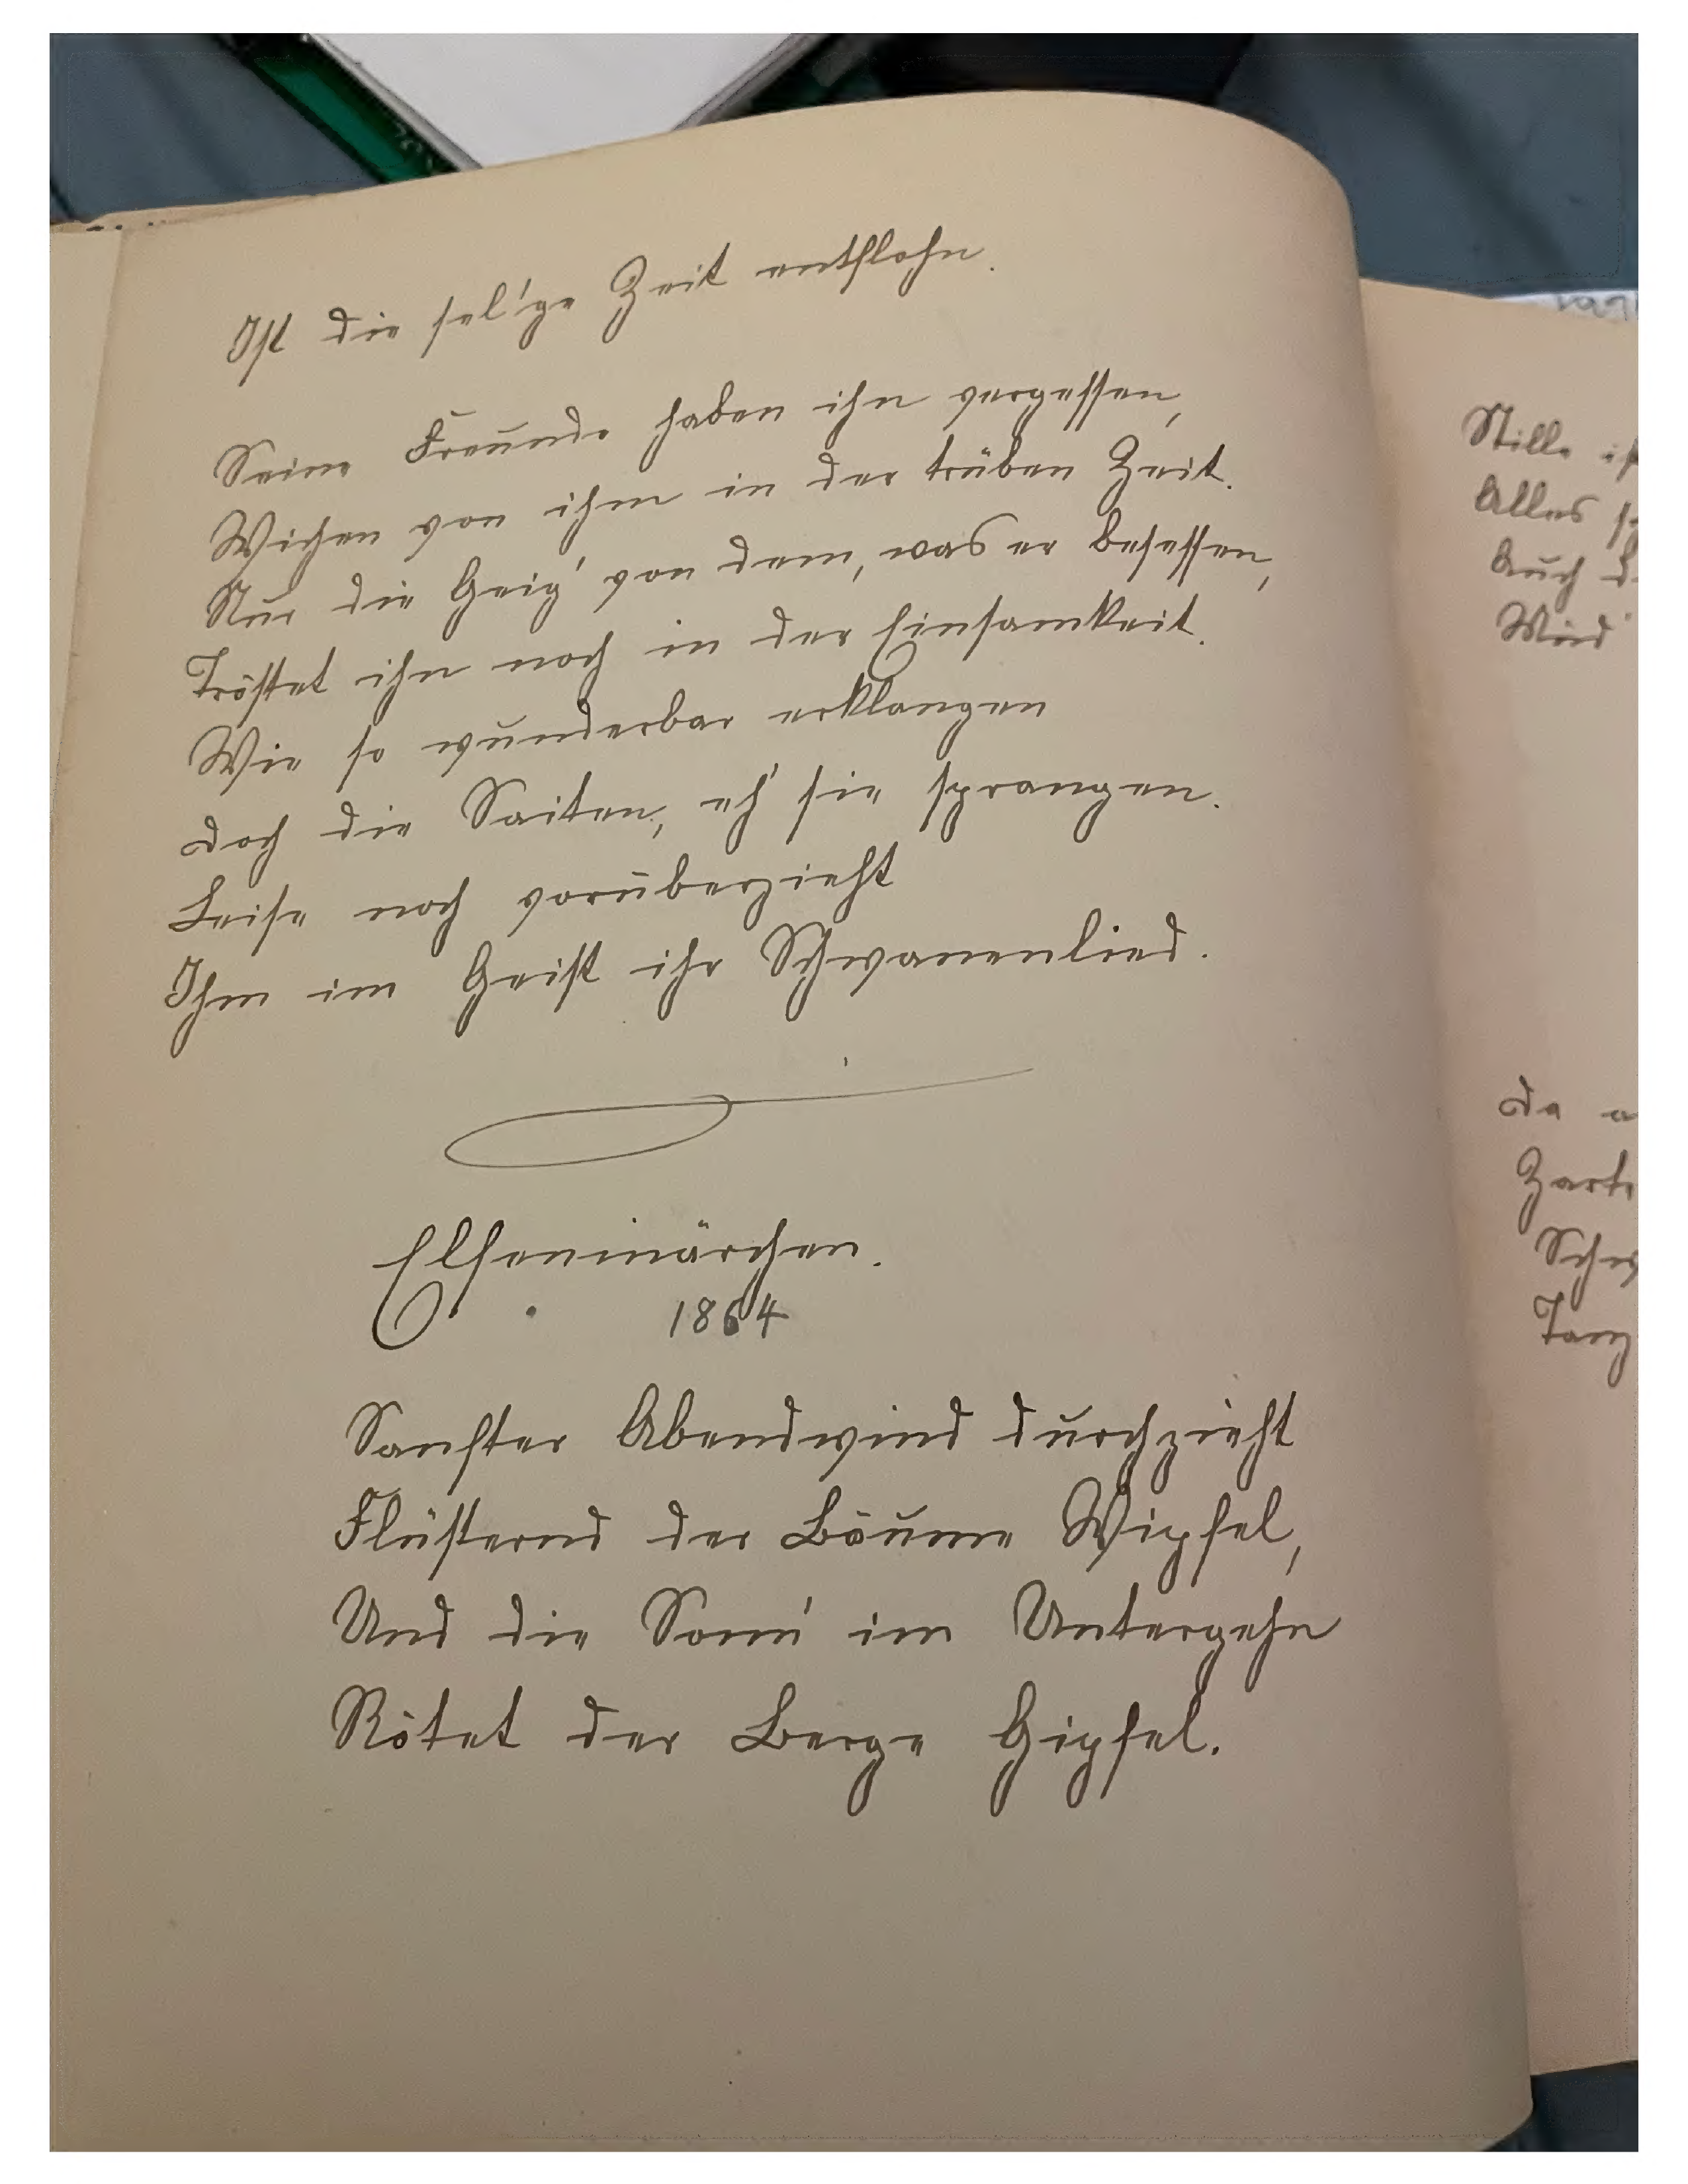 Ist die sel'ge Zeit entflohn.
Seine Freunde haben ihn vergessen,
Wichen von ihm in der trüben Zeit.
Nur die Geig' von dem, was er besessen,
Tröstet ihn noch in der Einsamkeit.
Wie so wunderbar erklangen
Doch die Saiten, eh' sie sprangen.
Leise noch vorüberzieht
Ihm im Geist ihr Schwanenlied.
Elfenmärchen.
1864
Sanfter Abendwind durchzieht
Flüsternd der Bäume Wipfel,
Und die Sonn' im Untergehn
Rötet der Berge Gipfel.
Stille
Alles
Auch
Wird
Da